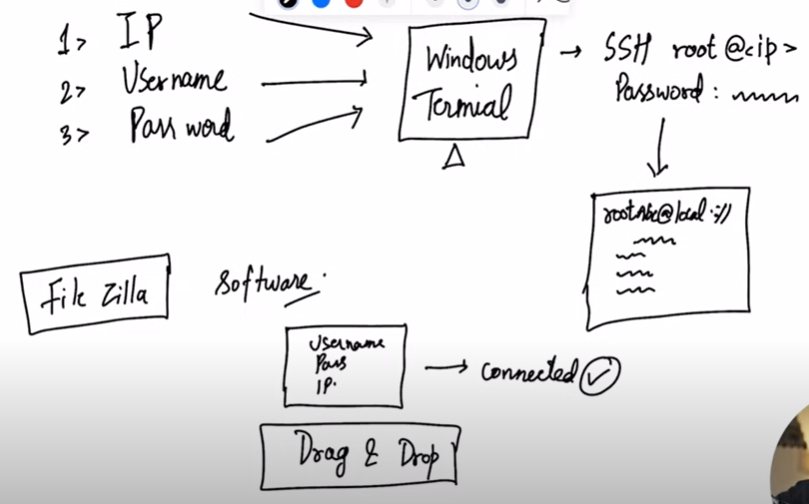 1> IP
2> Username
3> Password
Windows
Termial
SSH root @<ip>
Password :
root@local:://
File Zilla
Software.
Username
Pass
IP.
connected
Drag & Drop